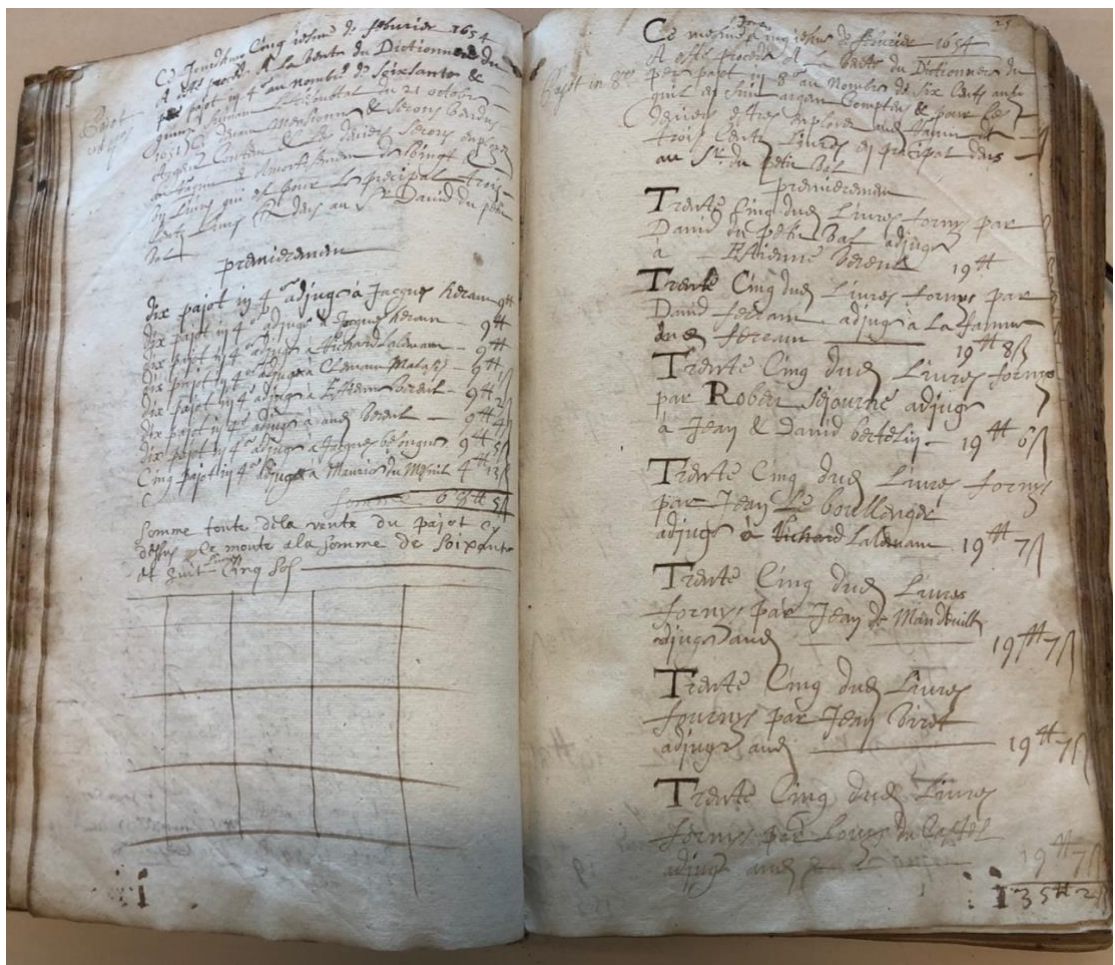 Ce Jourdhuy Cinqiesme de febvrier 1654
A esté procedé A la vente du Dictionnere du
per pajot in 4° au nombre de soixante &
quinze suivant du 21 octobre
1651 & seront vendus
argent Contan & les deniers seront employés
trois
Centz Livres deus au Sr David du petit
bal
premieremen
dix pajot in 4° adjugé à Jacques heram 9tt
dix pajot in 4° adjugé à Jacques heram – 9tt
dix pajot in 4° adjugé à Richard lalemam – 9tt
dix pajot in 4° adjugé à Clemam Malassis – 9tt 1ß
dix pajot in 4° adjugé à Estienne vereul – 9tt 2ß
dix pajot in 4° adjugé à aud vereul – 9tt 4ß
dix pajot in 4° adjugé à Jacques besongne 9tt 5ß
Cinq pajot in 4° adjugé à Maurice du Mesnil 4tt 13ß
Somme 68tt 5ß
Somme toute dela vente du pajot cy
dessus Ce monte ala somme de soixante
et huit Livres Cinq sol
25
Ce mesme Jour Cinqiesme de febvrier 1654
Pajot in 8vo
A esté procedé a la vente du Dictionnere du
per pajot in 8° au Nombre de six Centz
argan Comptan & pour les
deniers estres employés
trois Centz Livres en principal deus
au Sr du petit bal
premieremen
Trente Cinq dud Livres fornys par
David du petit bal adjugé
à Estienne vereul 19tt
Trente Cinq dud Livres fornys par
David ferram adjugé à La famme
dud ferram 19tt 8ß
Trente Cinq dud Livres fornys
par Robert Sejourné adjugé
à Jean & David bertelin – 19tt 6ß
Trente Cinq dud Livres fornys
par Jean Le boullenger
adjugé à Richard Lalemam 19tt 7ß
Trente Cinq dud Livres
fornys par Jean de Mandeville
adjugé aud 19tt 7ß
Trente Cinq dud Livres
fournys par Jean Viret
adjugé aud 19tt 7ß
Trente Cinq dud Livres
fornys par Louys du Castel
adjugé aud 19tt 7ß
135tt 2ß